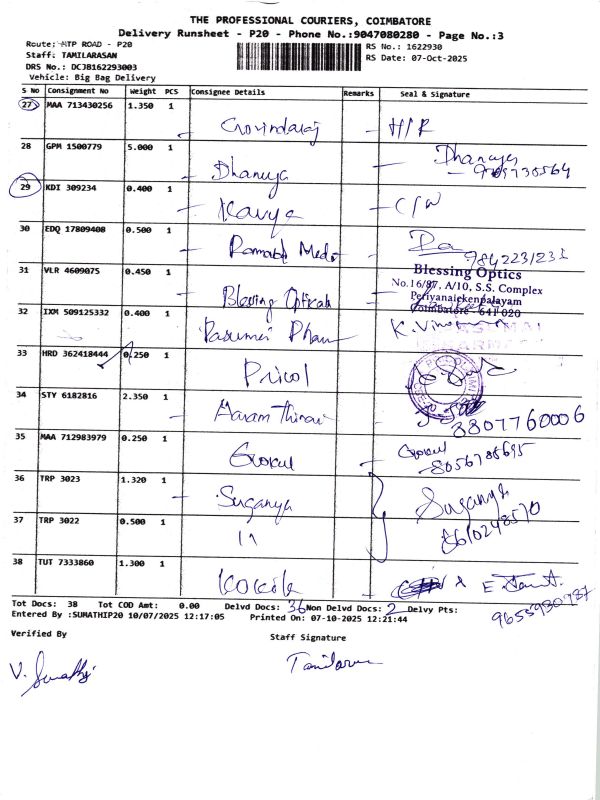 THE PROFESSIONAL COURIERS, COIMBATORE
Delivery Runsheet - P20 - Phone No.:9047080280 - Page No.:3
Route: MTP ROAD - P20 RS No.: 1622930
Staff: TAMILARASAN RS Date: 07-Oct-2025
DRS No.: DCJB162293003
Vehicle: Big Bag Delivery
S No Consignment No Weight PCS Consignee Details Remarks Seal & Signature
27 MAA 713430256 1.350 1 Govindaraj H/R
28 GPM 1500779 5.000 1 Dhanuya Dhanuya
29 KDI 309234 0.400 1 Kavya C/W
30 EDQ 17809408 0.500 1 9842231233
31 VLR 4609075 0.450 1 Blessing Opticals Blessing Optics
No.16/87, A/10, S.S. Complex
Periyanaickenpalayam
Coimbatore - 641 020
32 IXM 509125332 0.400 1 K.
33 HRD 362418444 0.250 1 Pricol
34 STY 6182816 2.350 1 8807760006
35 MAA 712983979 0.250 1 Gokul Gokul
8056785695
36 TRP 3023 1.320 1 Suganya Suganya
37 TRP 3022 0.500 1 8610248570
38 TUT 7333860 1.300 1 E
Tot Docs: 38 Tot COD Amt: 0.00 Delvd Docs: 36 Non Delvd Docs: 2 Delvy Pts:
Entered By :SUMATHIP20 10/07/2025 12:17:05 Printed On: 07-10-2025 12:21:44
Verified By Staff Signature
V. Sumathi Tamilarasan